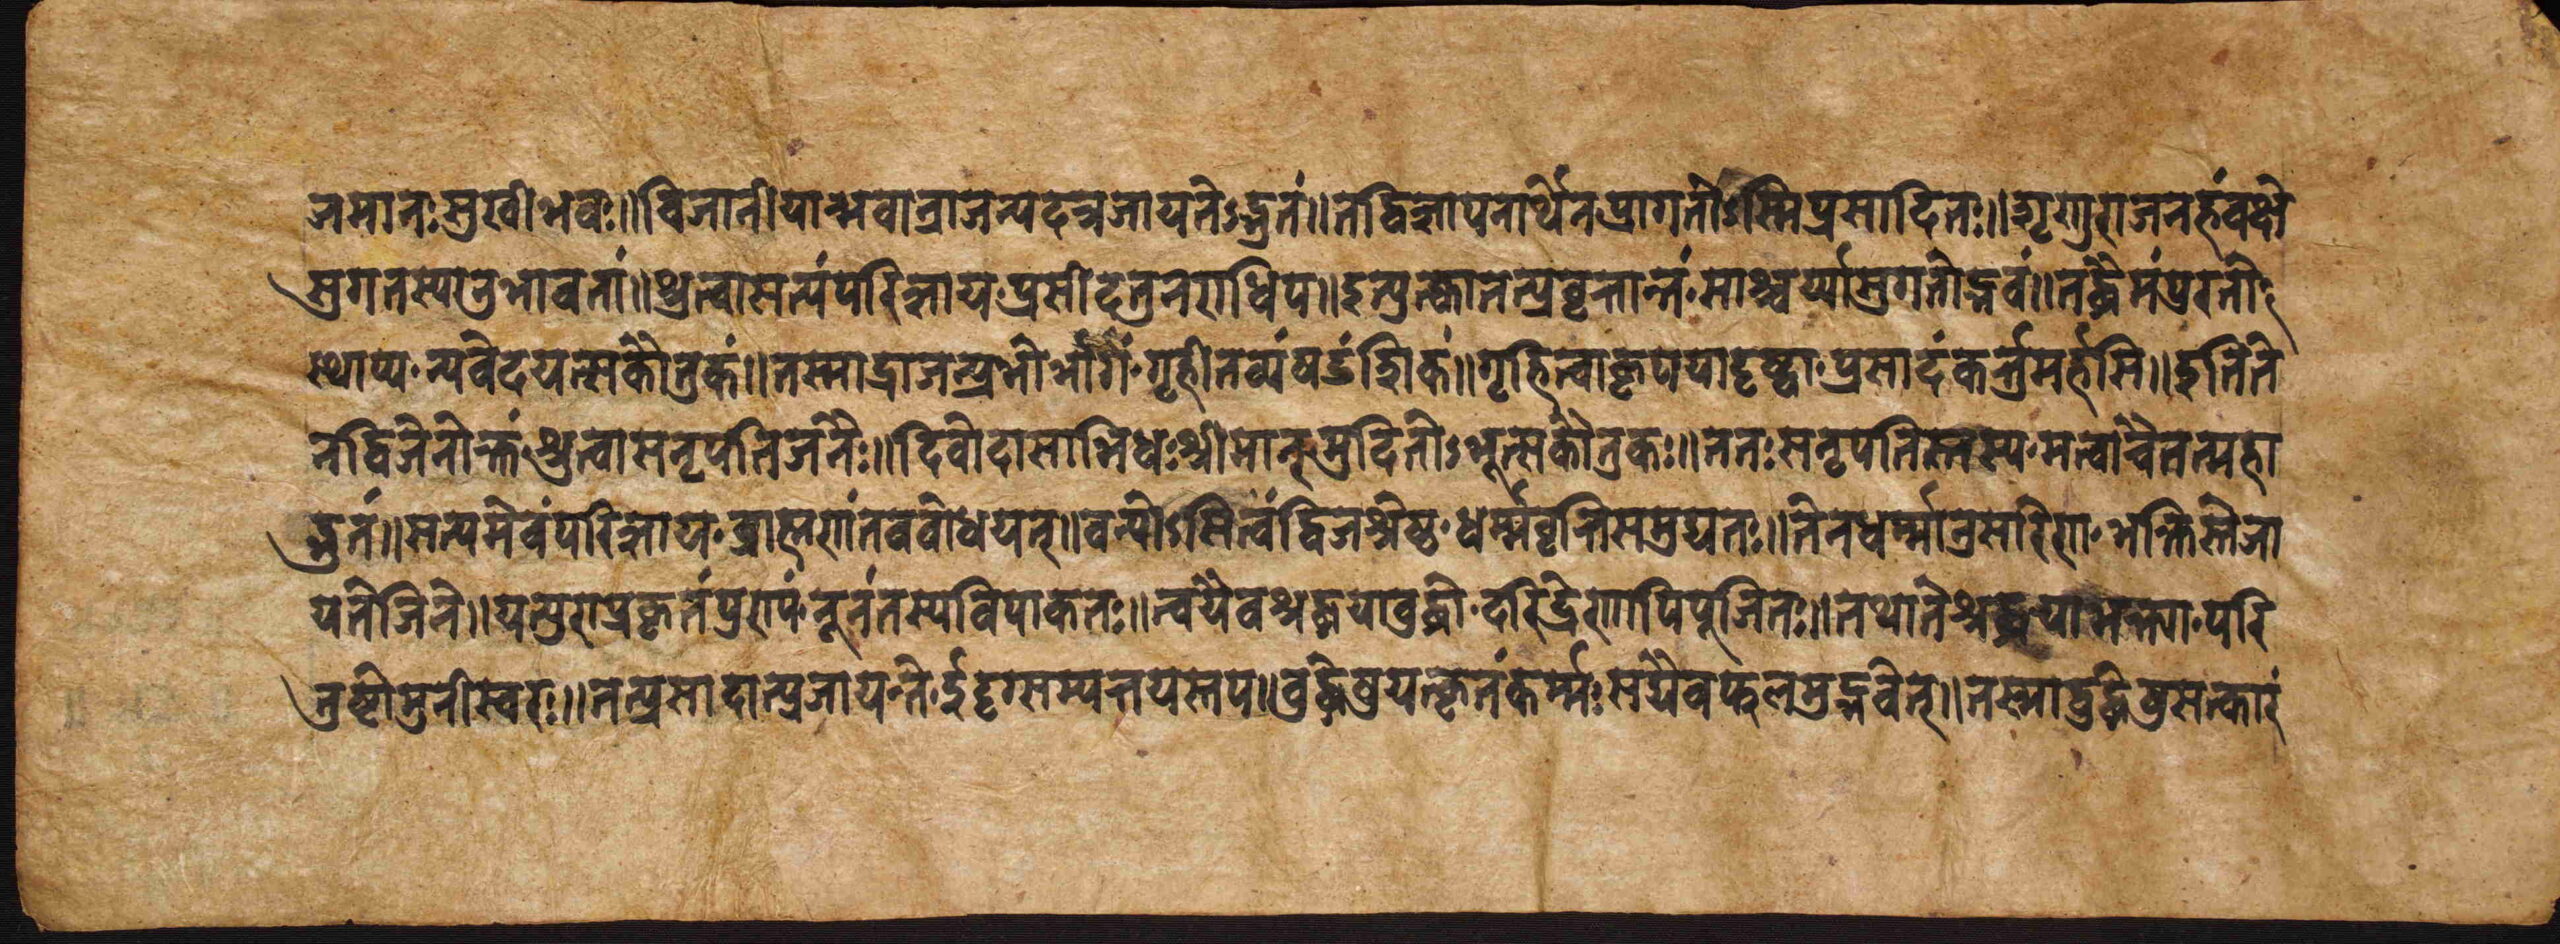 जमानः सुखी भव॥ विजानीयाद्भवान्राजन्यदत्र जायतेऽद्भुतं॥ तद्विज्ञापनार्थेन प्रागतोऽस्मि प्रसादितः॥ शृणु राजन्नहं वक्षे
सुगतस्यानुभावतां॥ श्रुत्वा सत्यं परिज्ञाय प्रसीदतु नराधिप॥ इत्युक्त्वा तत्प्रवृत्तान्तं साश्चर्य्य सुगतोद्भवं॥ तद्धेमं पुरतो
स्थाप्य न्यवेदयत्सकौतुकं॥ तस्माद्राजन्प्रभो भागं गृहीतव्यं षडंशिकं॥ गृहित्वा कृपया दृष्ट्वा प्रसादं कर्त्तुमर्हसि॥ इति ते
न द्विजेनोक्तं श्रुत्वा स नृपतिर्जनैः॥ दिवोदासाभिधः श्रीमान् मुदितोऽभूत्सकौतुकः॥ ततः स नृपतिस्तस्य मत्वा चैतन्महा
द्भुतं॥ सत्यमेवं परिज्ञाय ब्राह्मणं तं वबोधयत्॥ धन्योऽसि त्वं द्विजश्रेष्ठ धर्म्मवृत्तिसमुद्यतः॥ तेन धर्म्मानुसारेण भक्तिस्ते जा
यते जिने॥ यत्पुरा प्रकृतं पुण्यं नूनं तस्य विपाकतः॥ त्वयैव श्रद्धया बुद्धो दरिद्रेणापि पूजितः॥ तथा ते श्रद्धया भक्त्या परि
तुष्टो मुनीस्वरः॥ तत्प्रसादात्प्रजायन्ते ईदृग्सम्पत्तयस्तव॥ बुद्धेषु यत्कृतं कर्म्मः सद्यैव फलमुद्भवेत्॥ तस्माद्बुद्धेषु सत्कारं